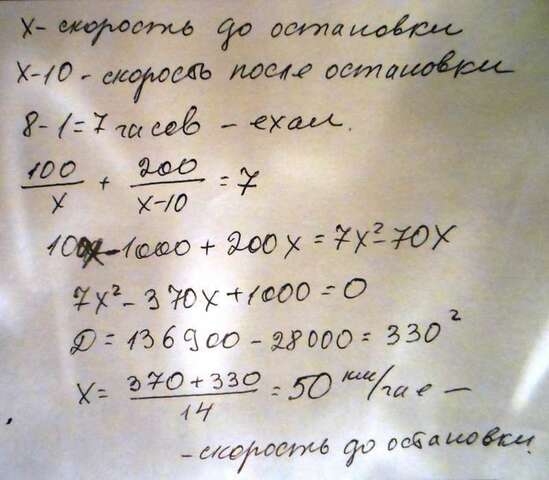 х- скорость до остановки
х-10 - скорость после остановки
8-1=7 часов - ехал.
100/х + 200/х-10 = 7
100х-1000 + 200х = 7х²-70х
7х² - 370х + 1000 = 0
Д = 136900 - 28000 = 330²
х = 370+330/14 = 50 км/час -
- скорость до остановки.